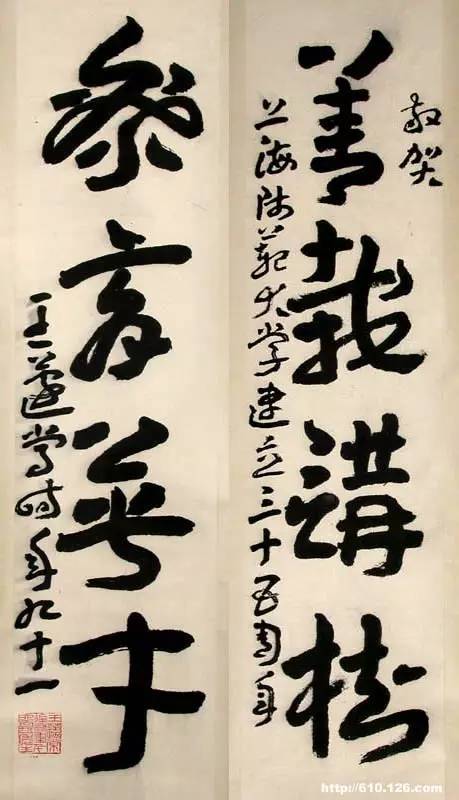 敬贺
上海师范大学建立三十五周年
菁莪講樹
樂育才
王蘧常时年九十一
http://610.126.com